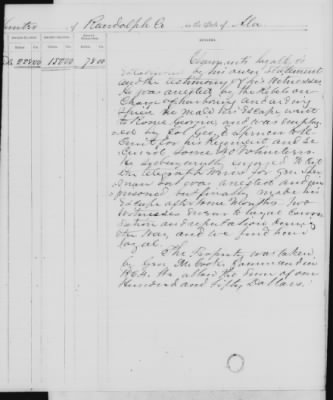 of Randolph Co in the State of Ala
REMARKS.
225.00 150.00 75.00
Claimants loyalty is
established by his own Statement
and the testimony of his Witnesses
He was arrested by the Rebels on
Charge of harboring and aiding
Spies he made his Escape went
to Rome Georgia and was employ
ed by Col Geo E Spencer to Re
cruit for his Regiment and se
cured some 20 Volunteers
He subsequently engaged to cut
the telegraph wires for Gen Sher
man but was arrested and im
prisoned but finally made his
Escape after some Months. Two
Witnesses swear to loyal Conver
sation and reputation during
the War, and we find him
loyal.
The Property was taken
by Gen McCook Commanding
We allow the sum of one
Hundred and Fifty Dollars.